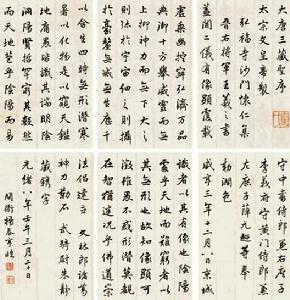 大唐三藏聖序
太宗文皇帝製
弘福寺沙門懷仁集
晉右將軍王羲之書
蓋聞二儀有像顯覆載之
虛乘幽控寂弘濟萬品
典御十方舉威靈而無
上抑神力而無下大之
則弥於宇宙細之則攝
於豪釐無滅無
以含生四時無形潛寒
暑以化物是以窺天鑑
地庸愚皆識其端明陰
洞陽賢哲罕窮其數然
而天地苞乎陰陽而易
守中書侍郎兼
李義府守黃門侍郎兼
左庶子薛元超等奉
勅潤色
咸亨三年十二月八日京城
識者以其有像也陰陽
處乎天地而難窮者以
其無形也故知像顯可
徵雖愚不惑形潛莫覩
法侶建立 文林郎諸葛
神力勒石 武騎尉朱靜
藏鐫字
光緒八年壬午三月二十日